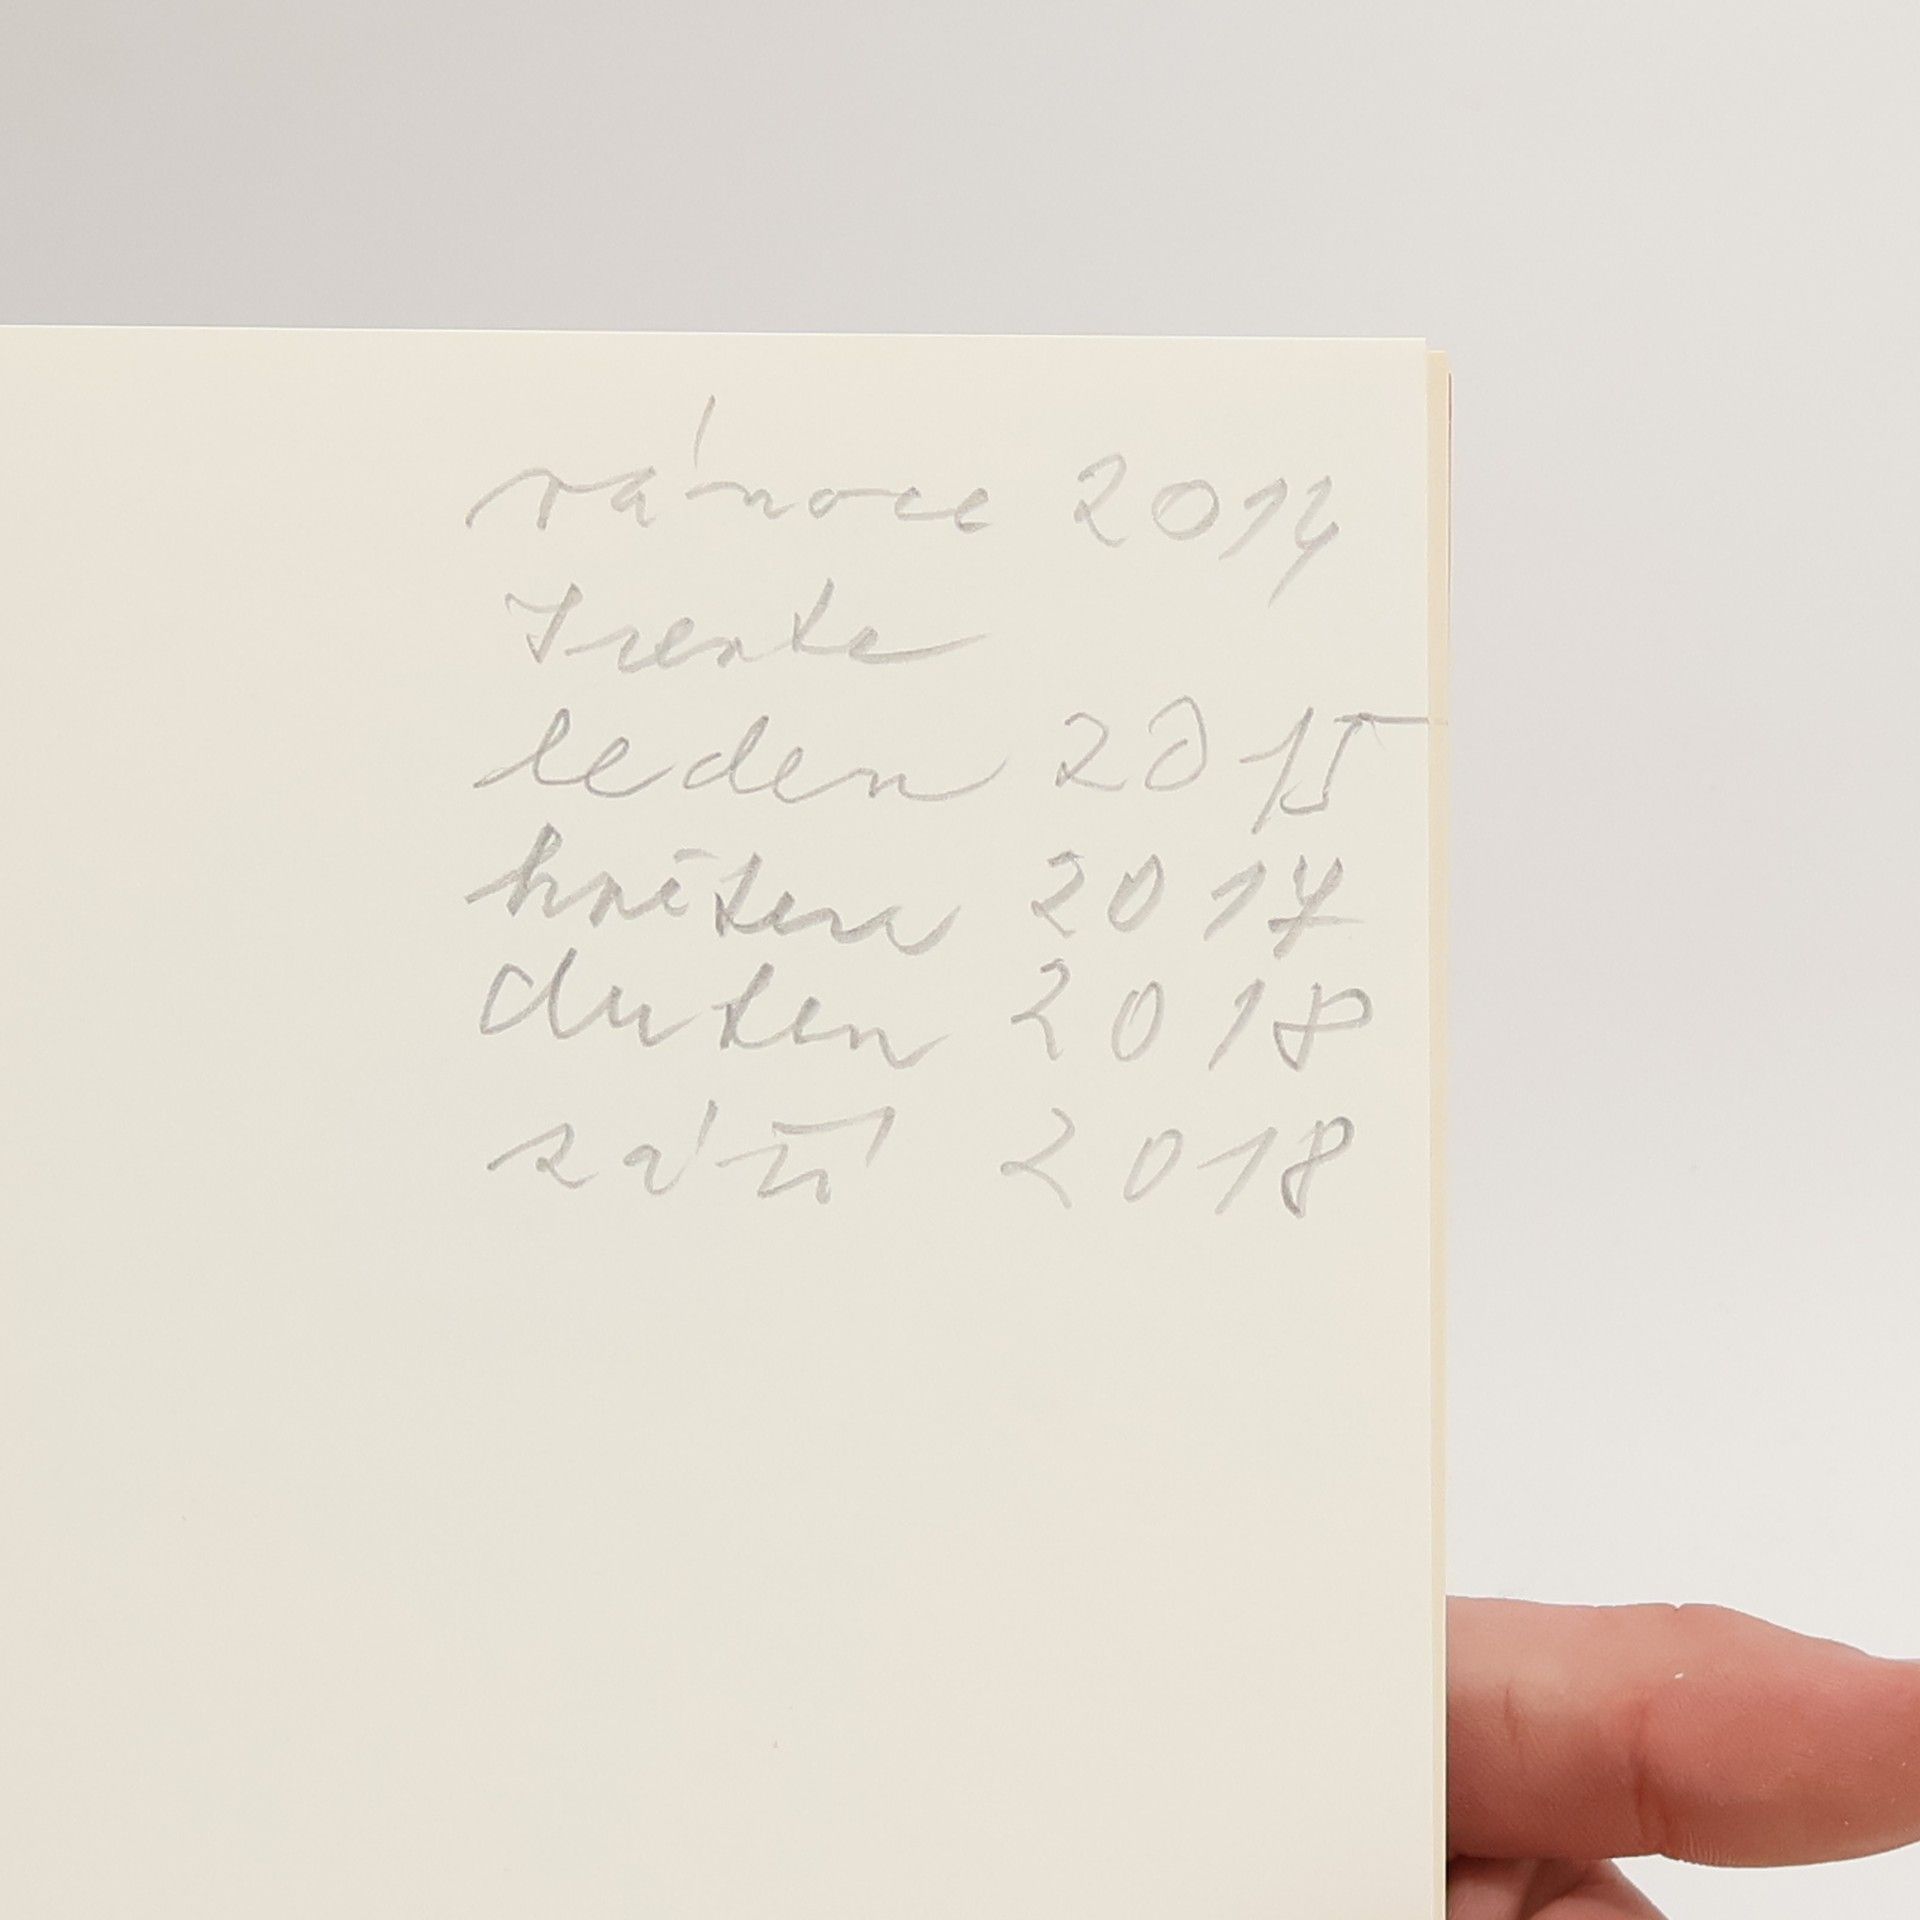 vánoce 2014
leden 2015
květen 2017
duben 2018
září 2018